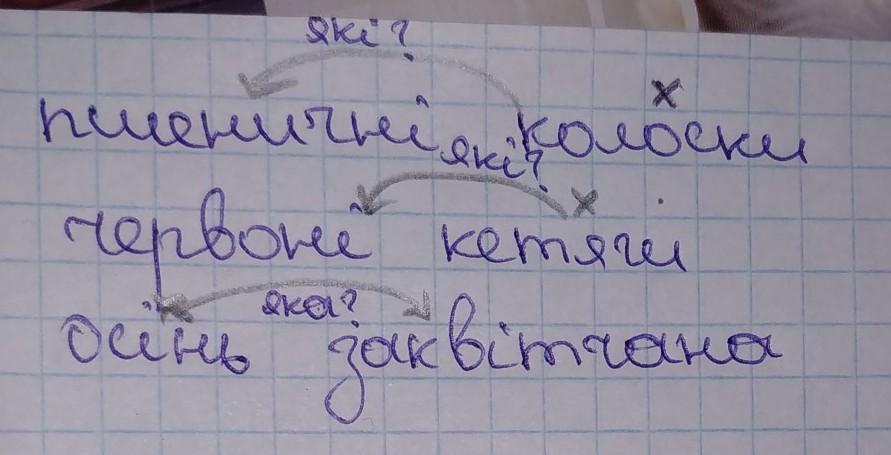 які?
х
пшеничні колоски
які?
х
червоні кетяги
яка?
осінь заквітчана